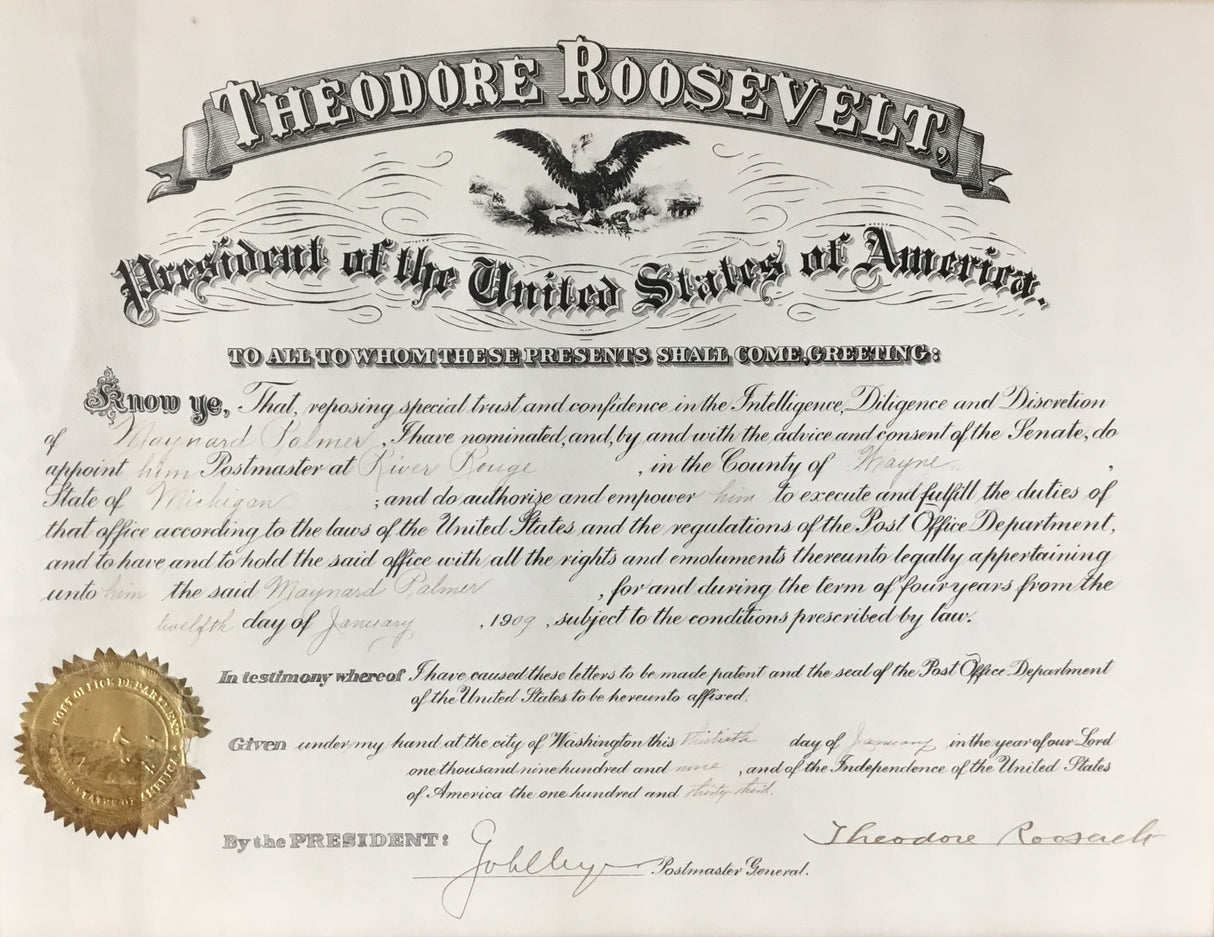 THEODORE ROOSEVELT,
President of the United States of America.
TO ALL TO WHOM THESE PRESENTS SHALL COME, GREETING:
Know ye, That, reposing special trust and confidence in the Intelligence, Diligence and Discretion
of Maynard Palmer, I have nominated, and, by and with the advice and consent of the Senate, do
appoint him Postmaster at River Rouge, in the County of Wayne,
State of Michigan; and do authorise and empower him to execute and fulfill the duties of
that office according to the laws of the United States and the regulations of the Post Office Department,
and to have and to hold the said office with all the rights and emoluments thereunto legally appertaining
unto him the said Maynard Palmer, for and during the term of four years from the
twelfth day of January, 1909, subject to the conditions prescribed by law.
In testimony whereof I have caused these letters to be made patent and the seal of the Post Office Department
of the United States to be hereunto affixed.
Given under my hand at the city of Washington this thirtieth day of January in the year of our Lord
one thousand nine hundred and nine, and of the Independence of the United States
of America the one hundred and thirty-third.
By the PRESIDENT:
Theodore Roosevelt
Postmaster General.
POST OFFICE DEPARTMENT
UNITED STATES OF AMERICA